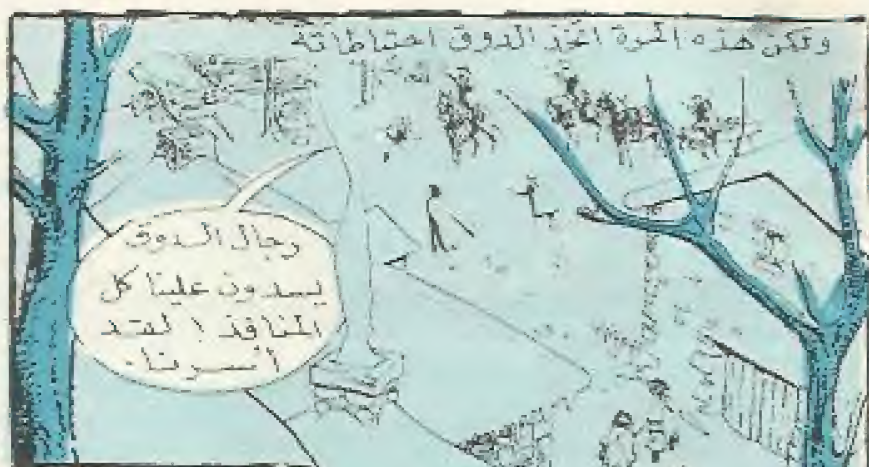 ولكن هذه المرة اتخذ الدوق احتياطاته
رجال الدوق
يسدون علينا كل
المنافذ ! لقد
أسرنا.